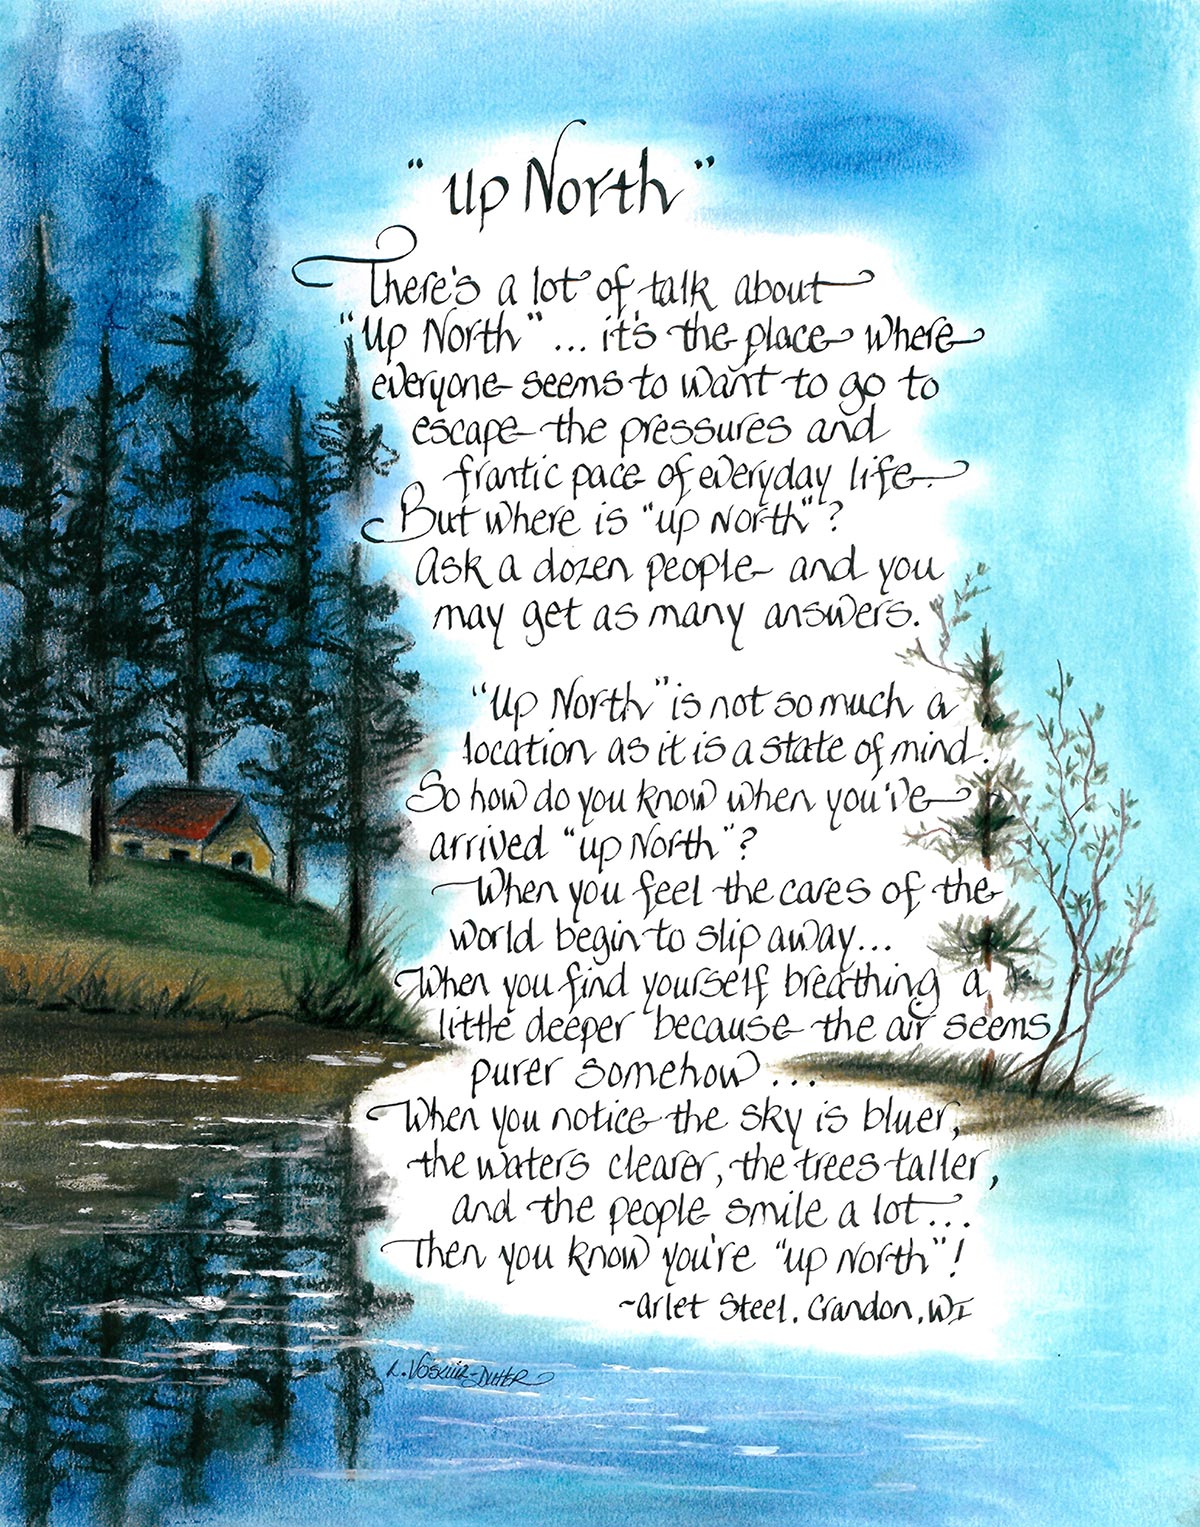 "Up North"
There's a lot of talk about
"Up North"... it's the place where
everyone seems to want to go to
escape the pressures and
frantic pace of everyday life.
But where is "up North"?
Ask a dozen people and you
may get as many answers.
"Up North" is not so much a
location as it is a state of mind.
So how do you know when you've
arrived "up North"?
When you feel the cares of the
world begin to slip away...
When you find yourself breathing a
little deeper because the air seems
purer somehow...
When you notice the sky is bluer,
the waters clearer, the trees taller,
and the people smile a lot...
Then you know you're "up North"!
~Arlet Steel, Crandon, WI
L. Voskuil-Dutter